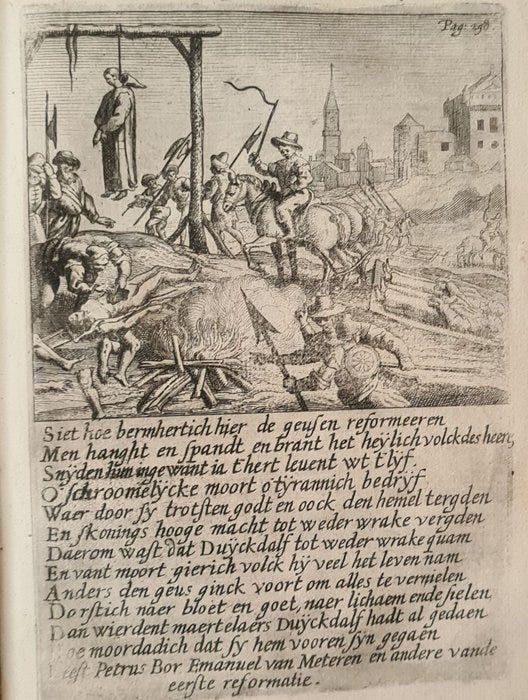 Pag: 298.
Siet hoe bermhertich hier de geusen reformeeren
Men hanght en spandt en brant het heylich volck des heeren,
Snyden hun ingewant ia thert leuent wt tlyf
O schroomelÿcke moort o tÿrannich bedrÿf
Waer door sÿ trotsten godt en oock den hemel tergden
En skonings hooge macht tot weder wrake vergden
Daerom wast dat Duÿckdalf tot weder wrake quam
En vant moort gierich volck hÿ veel het leven nam
Anders den geus ginck voort om alles te vernielen
Dorstich naer bloet en goet, naer lichaem ende sielen
Dan wierdent maertelaers Duÿckdalf hadt al gedaen
moordadich dat sÿ hem vooren sÿn gegaen
Leest Petrus Bor Emanuel van Meteren en andere vande
eerste reformatie.